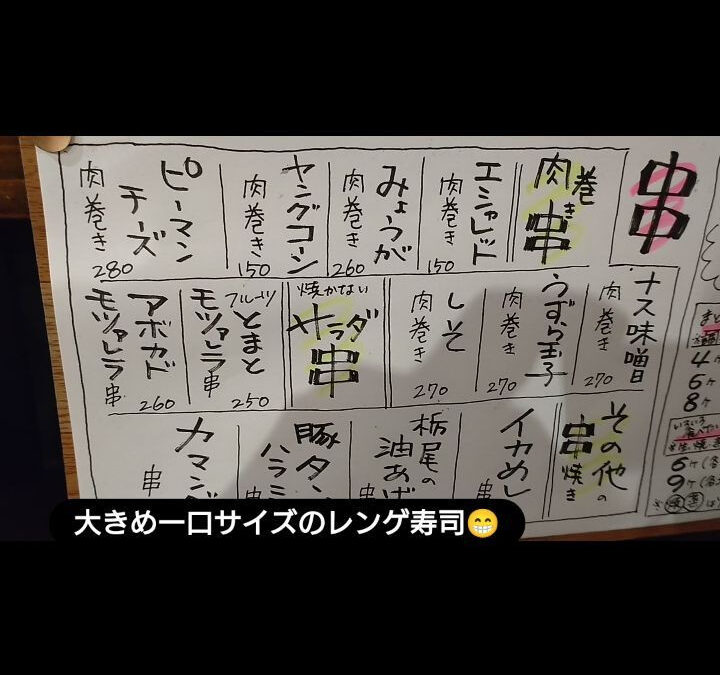 串
肉巻き串
エシャレット
肉巻き
150
みょうが
肉巻き
260
ヤングコーン
肉巻き
150
ピーマン
チーズ
肉巻き
280
ナス味噌
肉巻き
270
うずら玉子
肉巻き
270
しそ
肉巻き
270
焼かない
サラダ
串
フルーツ
とまと
モツァレラ串
250
アボカド
モツァレラ串
260
その他の
串焼き
イカめし
串
栃尾の
油あげ
豚タン
ハラミ
串
カマン
串
4ケ
6ケ
8ケ
6ケ
9ケ
大きめ一口サイズのレンゲ寿司😁